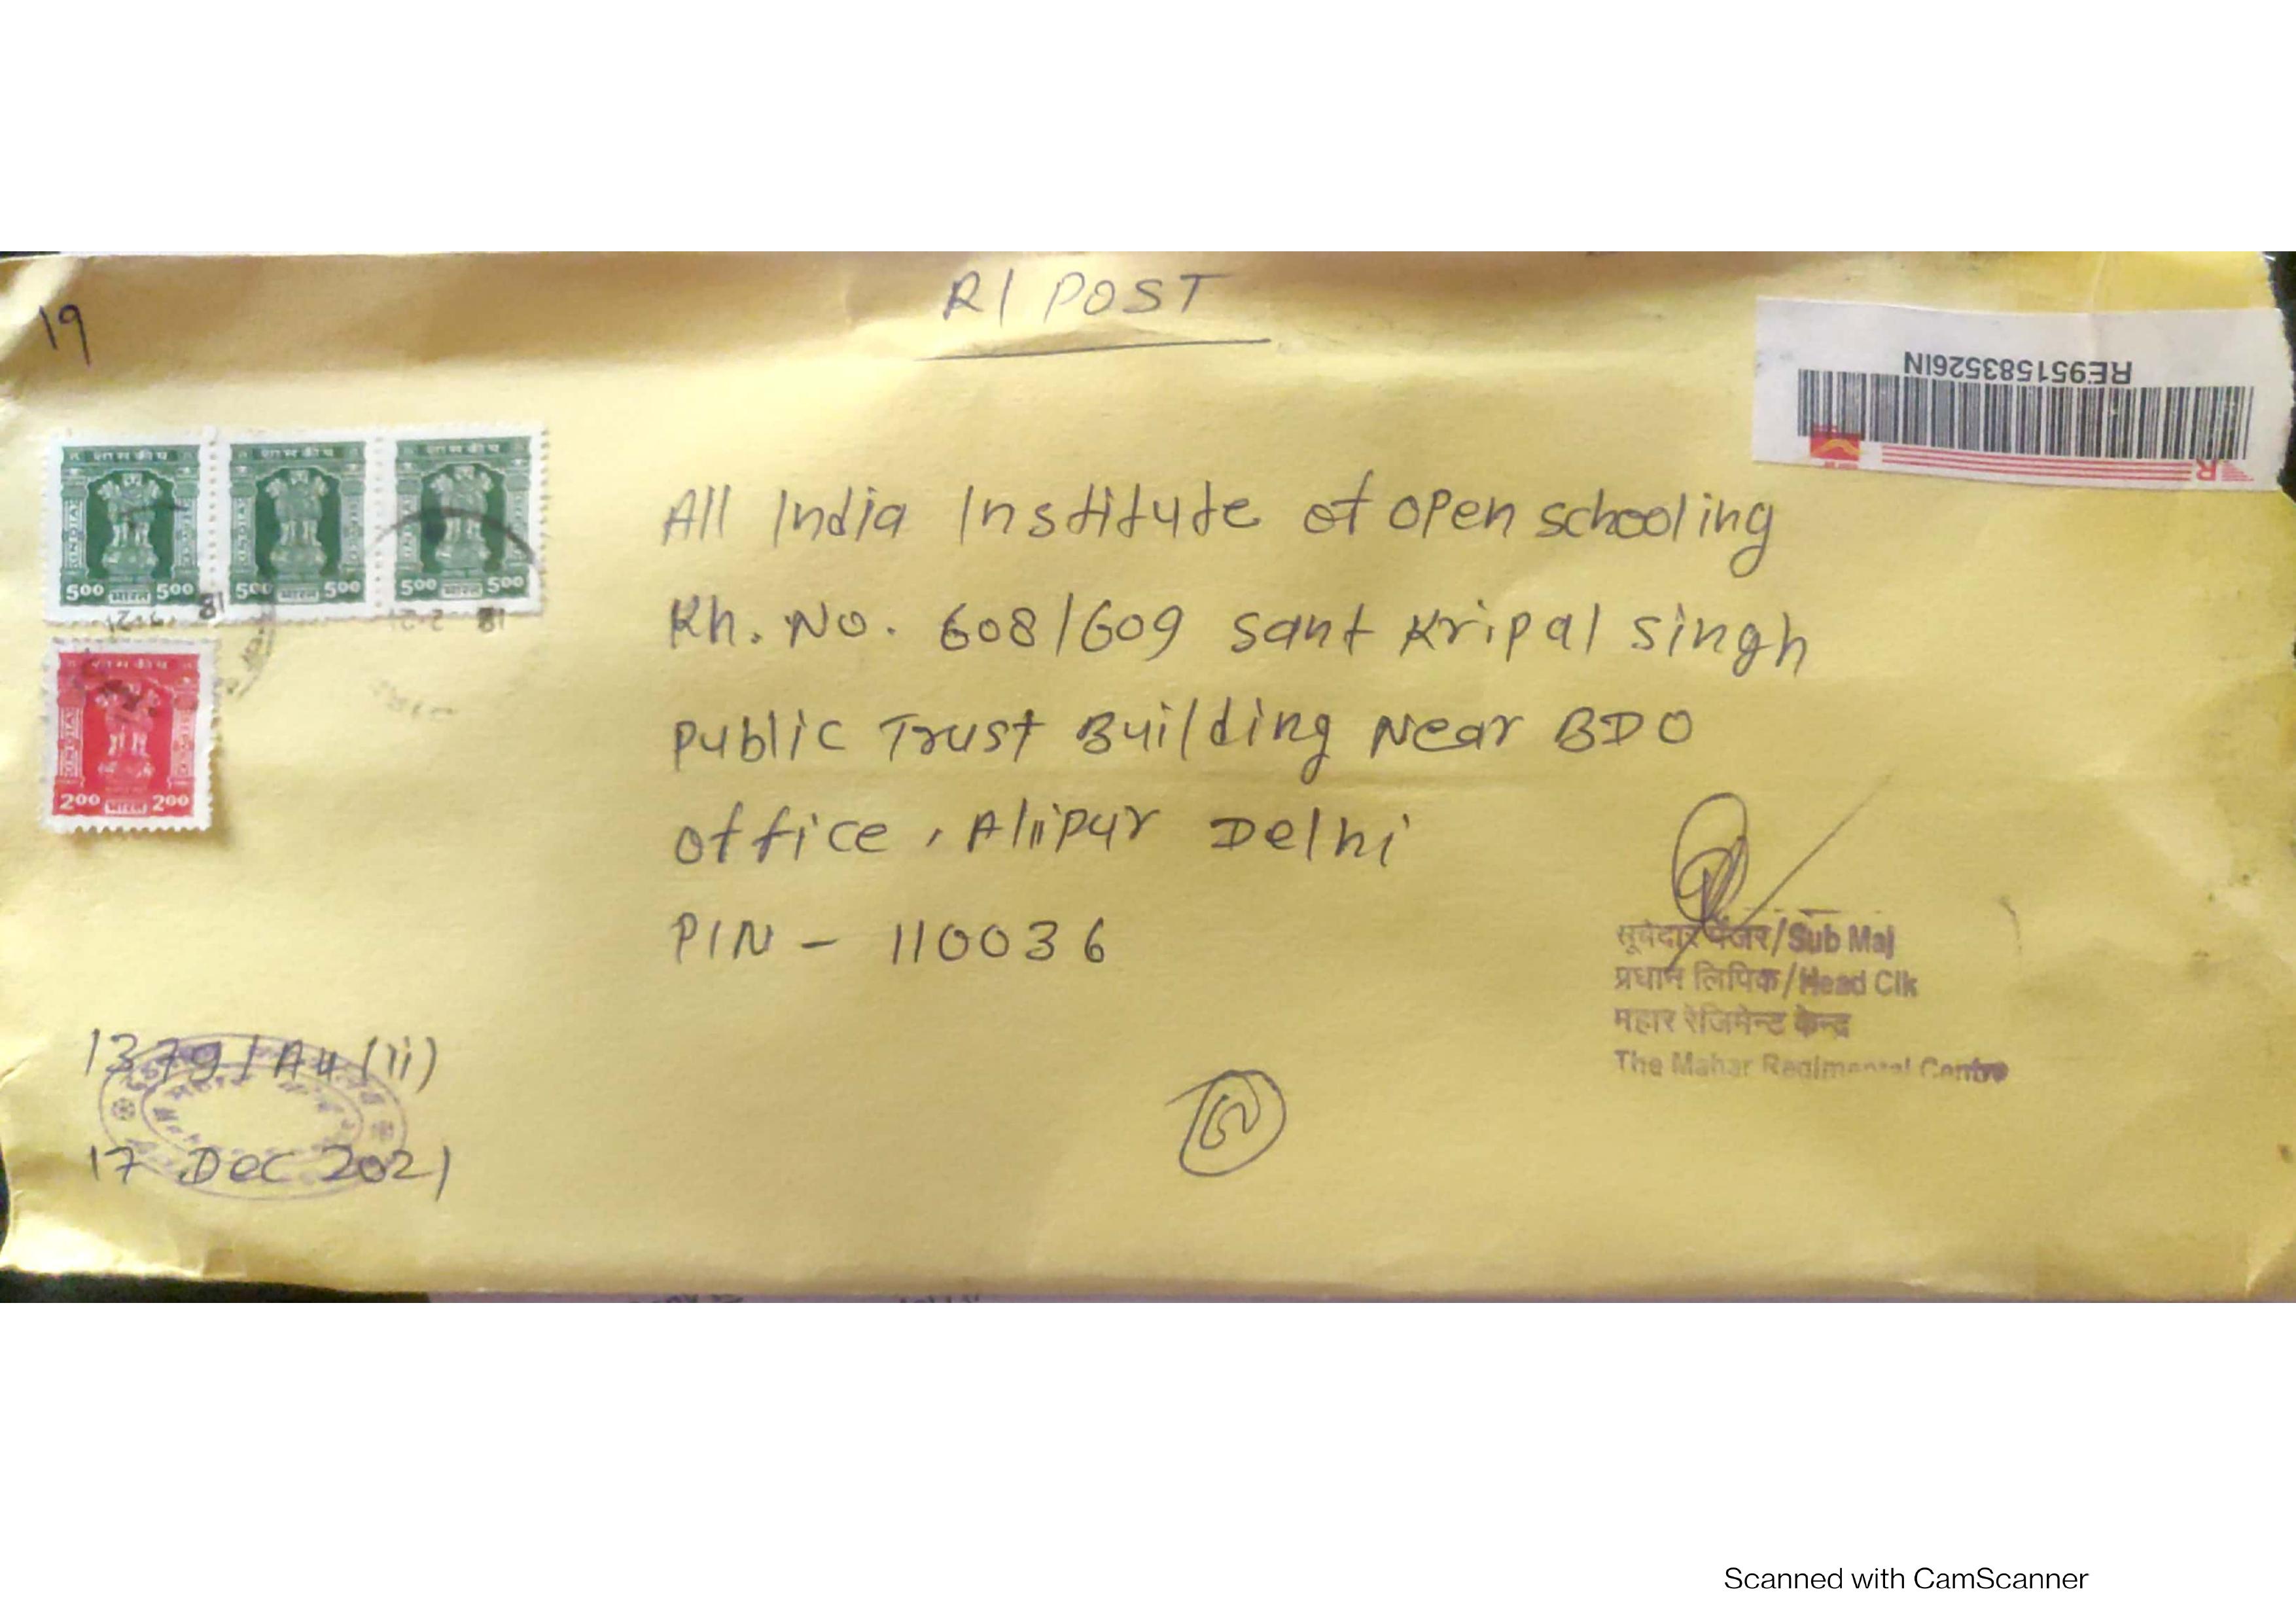 R/ POST
19
RE951583526IN
R
शासकीय शासकीय शासकीय
INDIA
500 भारत 500 500 भारत 500 500 भारत 500
शासकीय
INDIA
200 भारत 200
All India Institute of open schooling
Kh. No. 608/609 sant Kripal singh
public Trust Building Near BDO
office, Alipur Delhi
PIN - 110036
सूबेदार मेजर/Sub Maj
प्रधान लिपिक/Head Clk
महार रेजिमेन्ट केन्द्र
The Mahar Regimental Centre
1379/A4(ii)
17 Dec 2021
Scanned with CamScanner